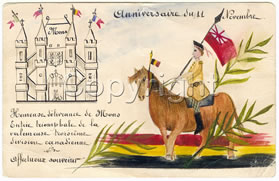 Anniversaire du 11 Novembre
Mons
Heureuse délivrance de Mons
Entrée triomphale de la
valeureuse troisième
division canadienne
Affectueux souvenir
copyright